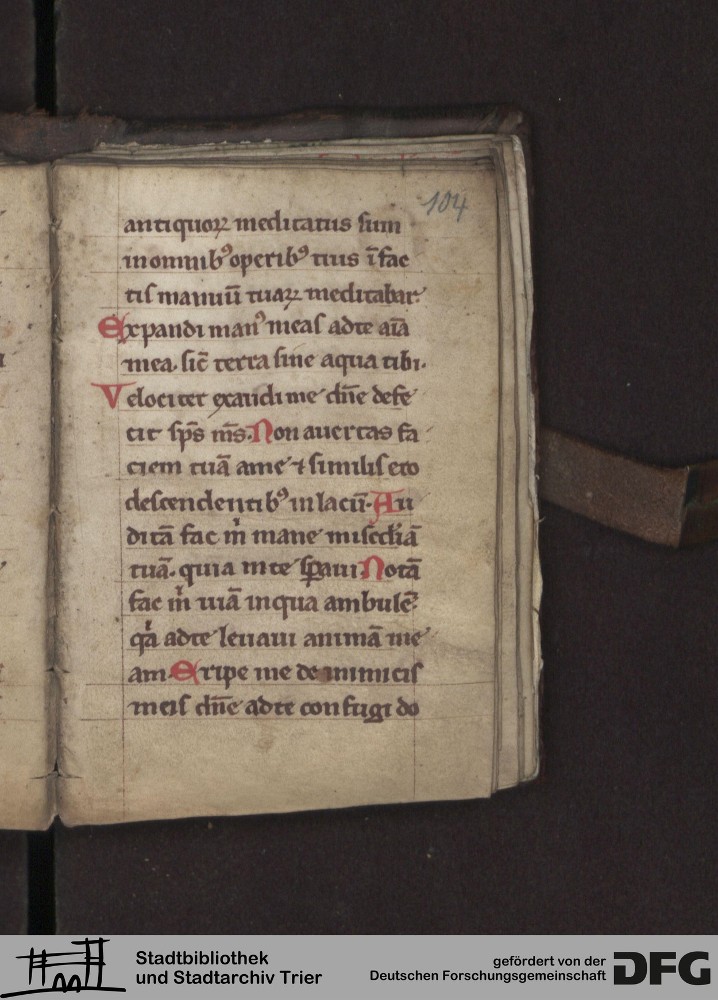 104
antiquoꝝ meditatus sum
in omnibꝰ operibꝰ tuis ī fac
tis manuū tuaꝝ meditabar.
Expandi manꝰ meas ad te aīa
mea. sic̄ terra sine aqua tibi.
Velociter exaudi me dn̄e defe
cit sp̄s m̄s. Non auertas fa
ciem tuā a me ⁊ similis ero
descendentibꝰ in lacū. Au
ditā fac m̄ mane mis̄cdiā
tuā. quia in te sꝑaui. Notā
fac m̄ uiā in qua ambulē.
qͣ ad te leuaui animā me
am. Eripe me de inimicis
meis dn̄e ad te confugi do
Stadtbibliothek
und Stadtarchiv Trier
gefördert von der
Deutschen Forschungsgemeinschaft
DFG